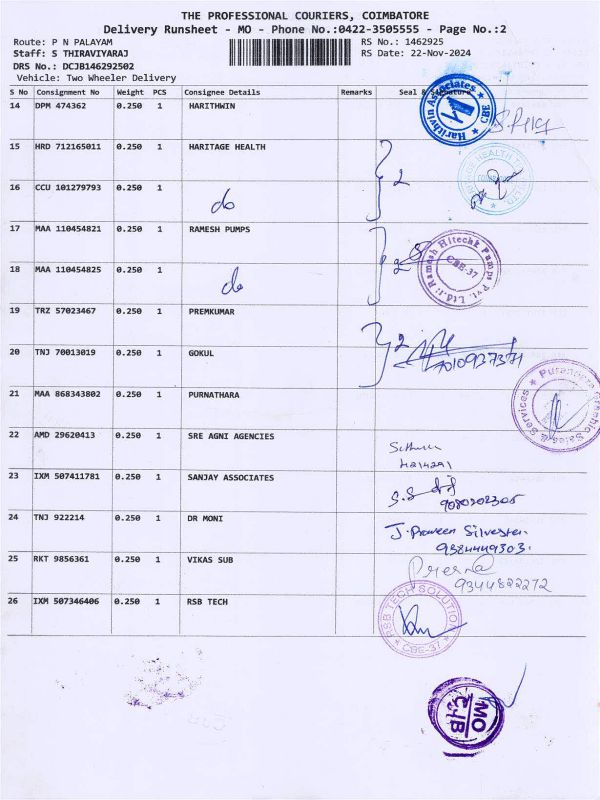 THE PROFESSIONAL COURIERS, COIMBATORE
Delivery Runsheet - MO - Phone No.:0422-3505555 - Page No.:2
Route: P N PALAYAM RS No.: 1462925
Staff: S THIRAVIYARAJ RS Date: 22-Nov-2024
DRS No.: DCJB146292502
Vehicle: Two Wheeler Delivery
S No Consignment No Weight PCS Consignee Details Remarks Seal & Signature
14 DPM 474362 0.250 1 HARITHWIN
Harithvin Associates CBE
15 HRD 712165011 0.250 1 HARITAGE HEALTH } 2
16 CCU 101279793 0.250 1 do
17 MAA 110454821 0.250 1 RAMESH PUMPS } 2
Ramesh Hitech Pumps Pvt. Ltd. CBE-37
18 MAA 110454825 0.250 1 do
19 TRZ 57023467 0.250 1 PREMKUMAR } 2
20 TNJ 70013019 0.250 1 GOKUL
21 MAA 868343802 0.250 1 PURNATHARA
Sales & Services
22 AMD 29620413 0.250 1 SRE AGNI AGENCIES
23 IXM 507411781 0.250 1 SANJAY ASSOCIATES
24 TNJ 922214 0.250 1 DR MONI J. Praveen Silvester
9384449303.
25 RKT 9856361 0.250 1 VIKAS SUB Prerna
9344822272
26 IXM 507346406 0.250 1 RSB TECH
RSB TECH SOLUTION CBE-37
MO
CJB